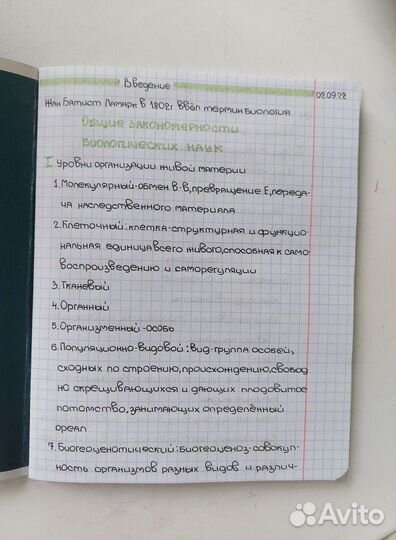 Введение
02.09.22
Жан Батист Ламарк в 1802г ввёл термин биология
Общие закономерности
биологических наук
I Уровни организации живой материи
1. Молекулярный-обмен В-В, превращение Е, переда-
ча наследственного материала
2. Клеточный: клетка-структурная и функцио-
нальная единица всего живого, способная к само-
воспроизведению и саморегуляции
3. Тканевый
4. Органный
5. Организменный-особь
6. Популяционно-видовой: вид-группа особей,
сходных по строению, происхождению, свобод
но скрещивающихся и дающих плодовитое
потомство, занимающих определённый
ореал
7. Биогеоценотический: биогеоценоз-совокуп-
ность организмов разных видов и различ-
Avito